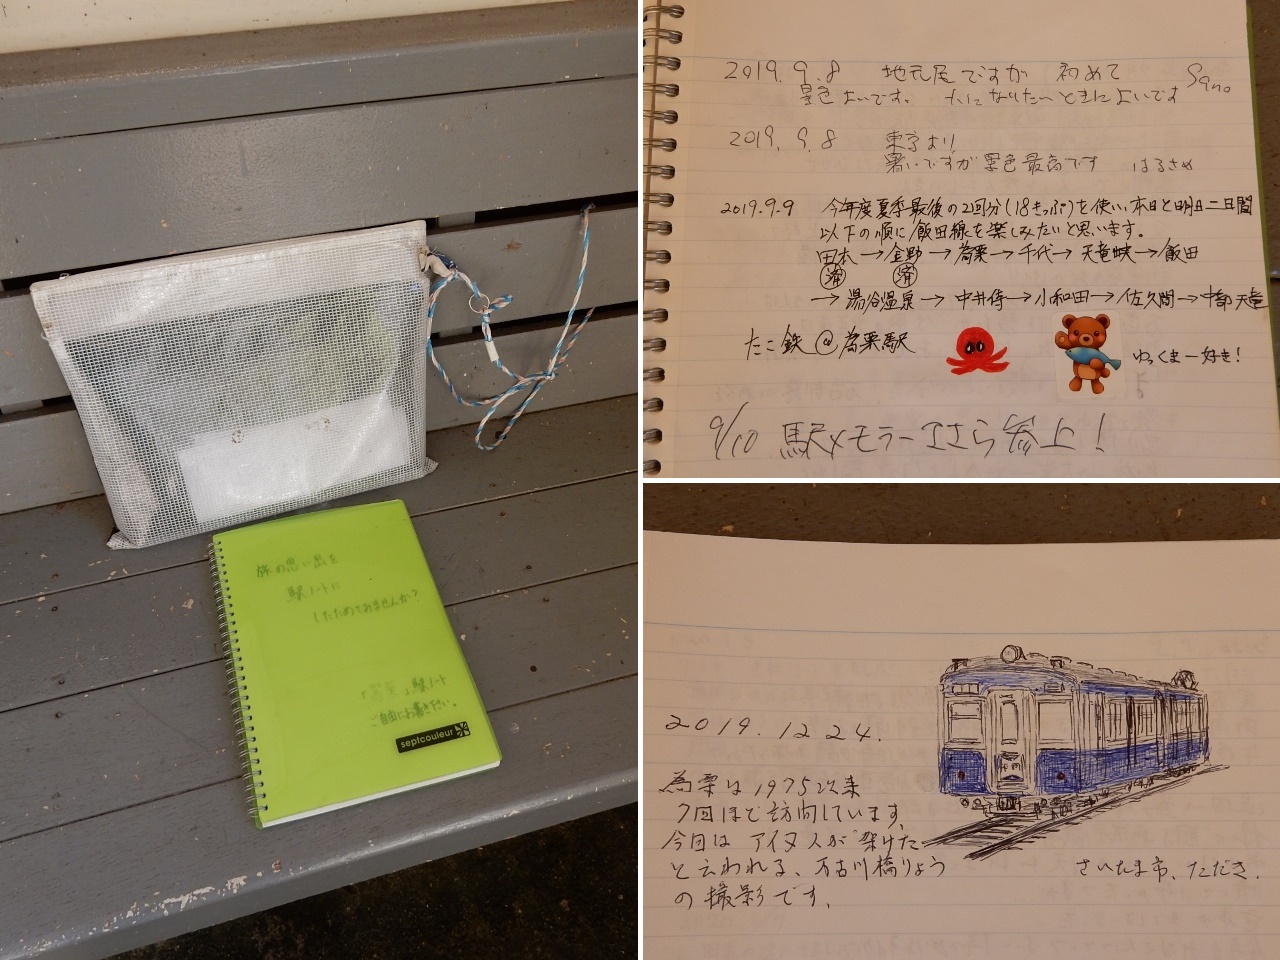 旅の思い出を
駅ノートに
したためてみませんか?
「為栗」駅ノート
ご自由にお書き下さい。
septcouleur
2019.9.8 地元民ですが 初めて
景色よいです。 になりたいときによいです
2019.9.8 東京より
暑いですが景色最高です はるさめ
2019.9.9 今年度夏季最後の2回分(18きっぷ)を使い、本日と明日二日間
以下の順に飯田線を楽しみたいと思います。
田本→金野→為栗→千代→天竜峡→飯田
済 済
→湯谷温泉→中井侍→小和田→佐久間→中部天竜
たこ鉄@為栗駅
ゆっくまー好き!
9/10 駅メモラー 参上!
2019.12.24.
為栗は1975以来
7回ほど訪問しています。
今回は アイヌ人が架けた
と云われる、万古川橋りょう
の撮影です。
さいたま市、ただき.